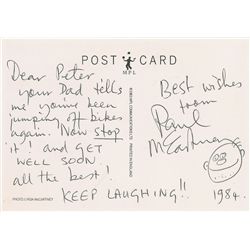 POST CARD
MPL
Dear Peter
your Dad tells
me you've been
jumping off bikes
again. Now stop
it! and GET
WELL SOON.
all the best!
KEEP LAUGHING!!
Best wishes
from
Paul
McCartney
1984.
© 1981 MPL COMMUNICATIONS LTD
PRINTED IN ENGLAND
PHOTO: LINDA McCARTNEY